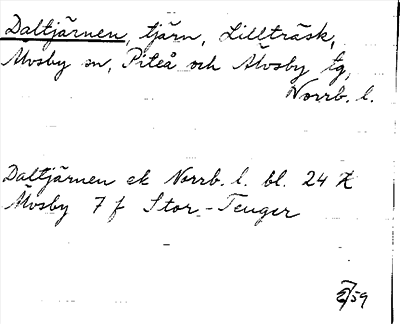 Daltjärnen, tjärn, Lillträsk,
Älvsby sn, Piteå och Älvsby tg,
Norrb. l.
Daltjärnen ek Norrb. l. bl. 24
Älvsby 7 f Stor-Tenger
59